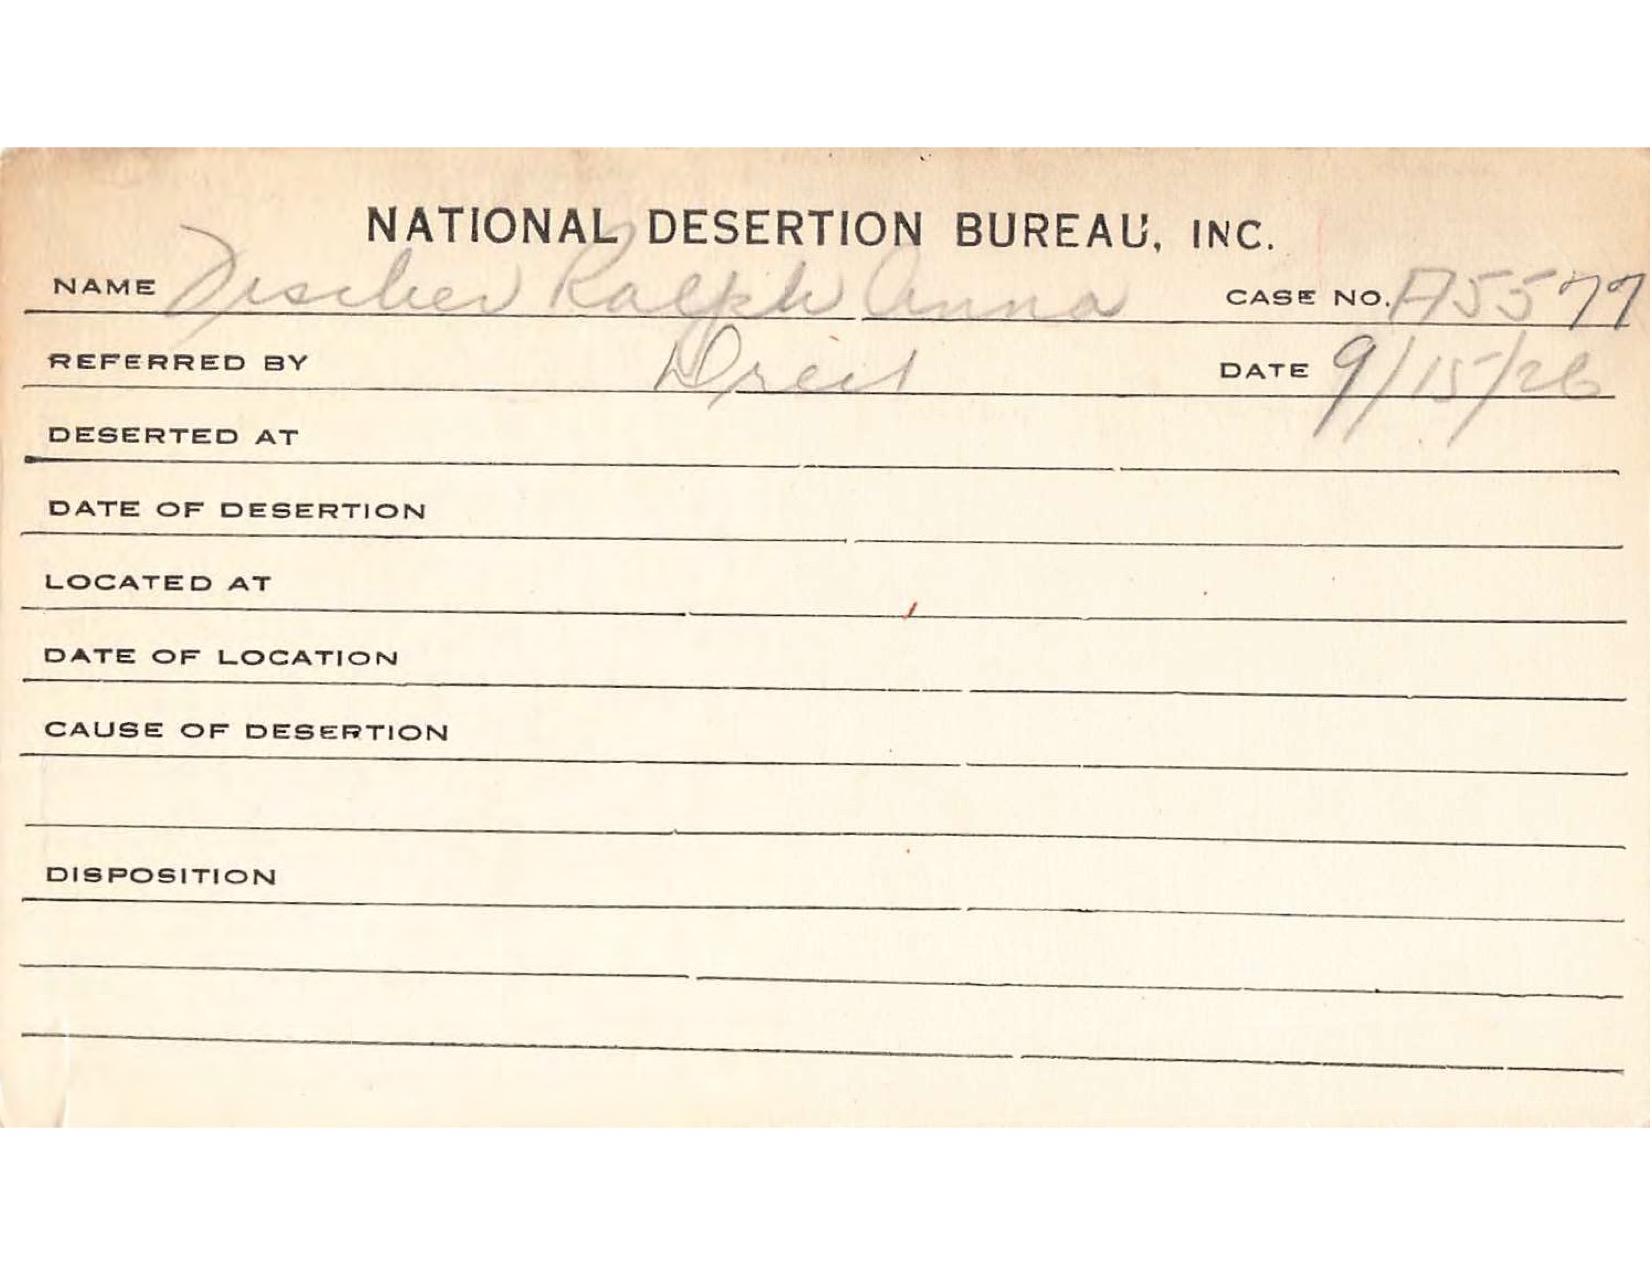 NATIONAL DESERTION BUREAU, INC.
NAME Fischer Ralph Anna CASE NO. A5577
REFERRED BY Direct DATE 9/15/26
DESERTED AT
DATE OF DESERTION
LOCATED AT
DATE OF LOCATION
CAUSE OF DESERTION
DISPOSITION